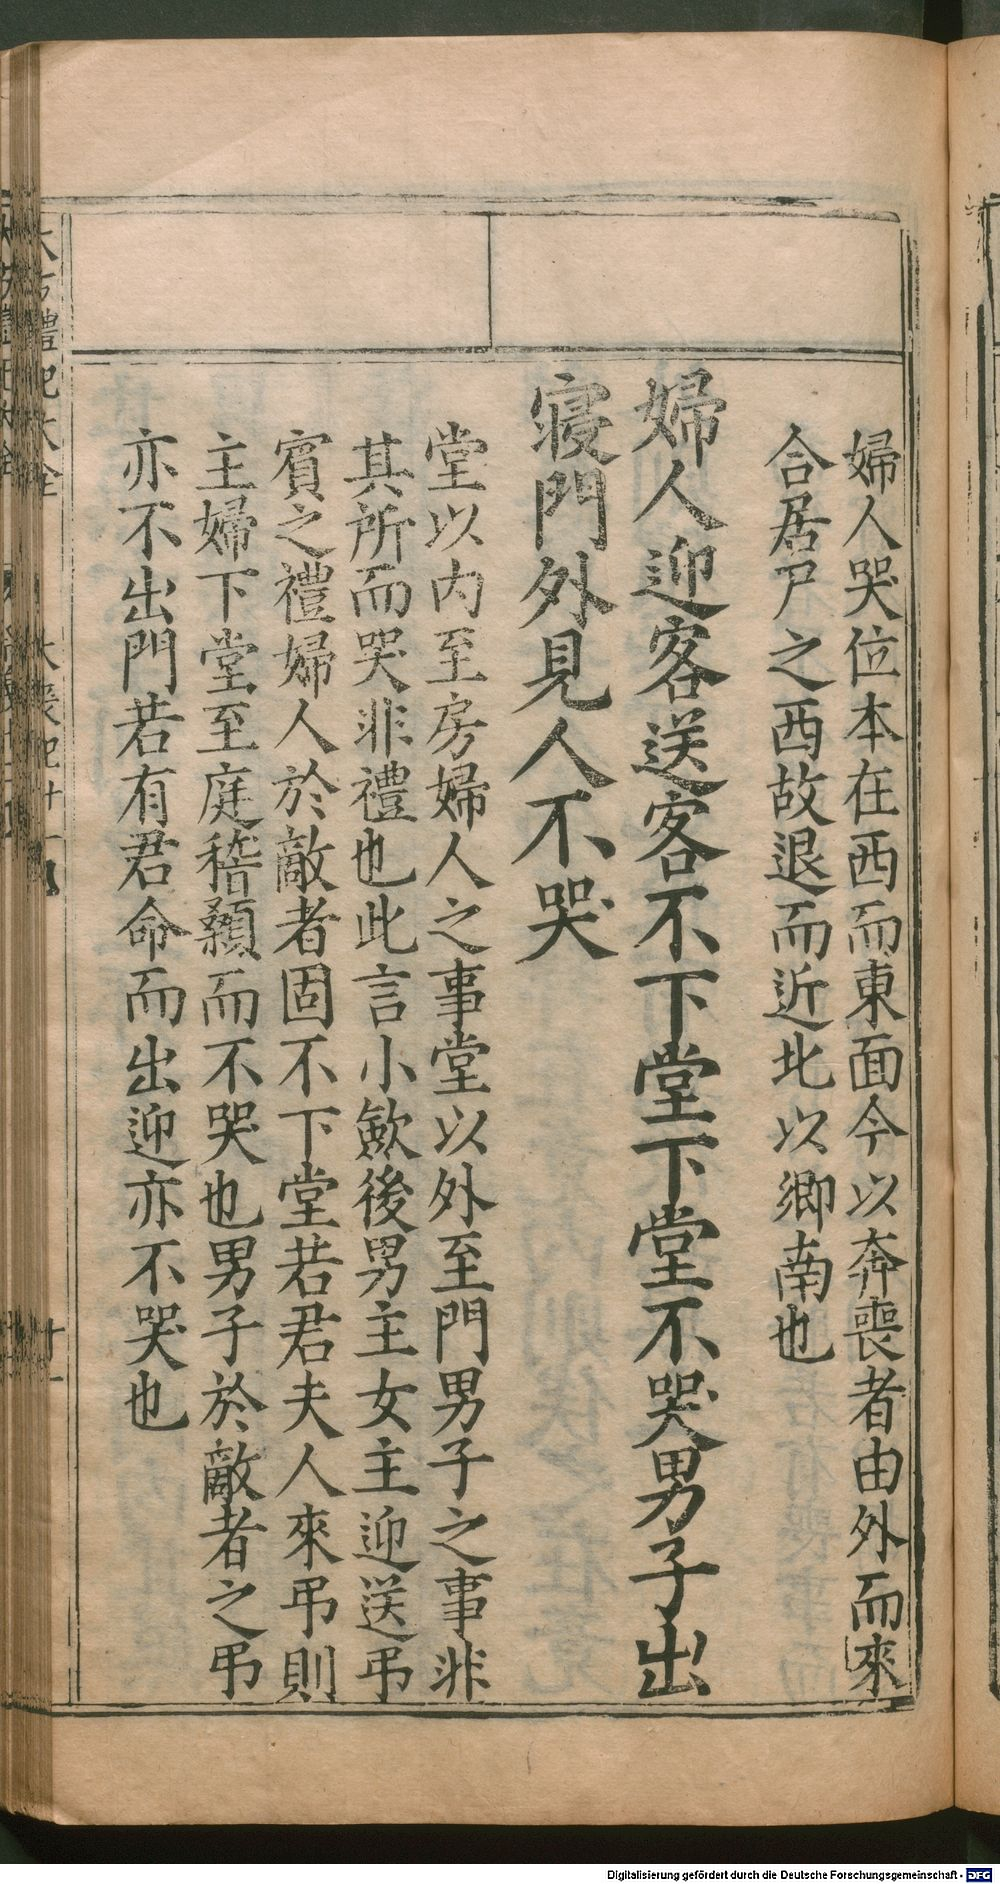 婦人哭位本在西而東面今以奔喪者由外而來
合居尸之西故退而近北以鄉南也
婦人迎客送客不下堂下堂不哭男子出
寝門外見人不哭
堂以内至房婦人之事堂以外至門男子之事非
其所而哭非禮也此言小斂後男主女主迎送弔
賓之禮婦人於敵者固不下堂若君夫人來弔則
主婦下堂至庭稽顙而不哭也男子於敵者之弔
亦不出門若有君命而出迎亦不哭也
大方禮記大全 大喪記廿 十一
Digitalisierung gefördert durch die Deutsche Forschungsgemeinschaft - DFG